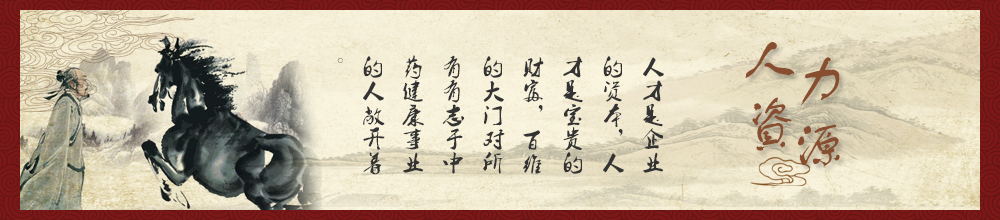 人力
資源
人才是企业
的资本，人
才是宝贵的
财富，百维
的大门对所
有有志于中
药健康事业
的人敞开着
。